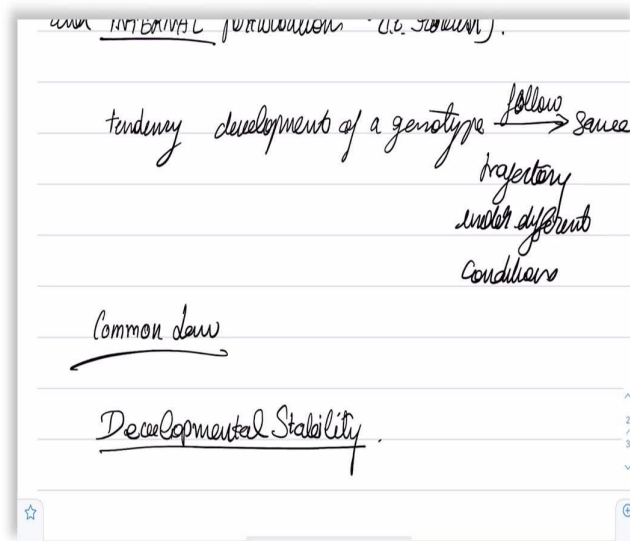 and INTERNAL perturbations (i.e.
tendency development of a genotype follow → same
trajectory
under different
conditions
Common Law
Developmental Stability.
2
3